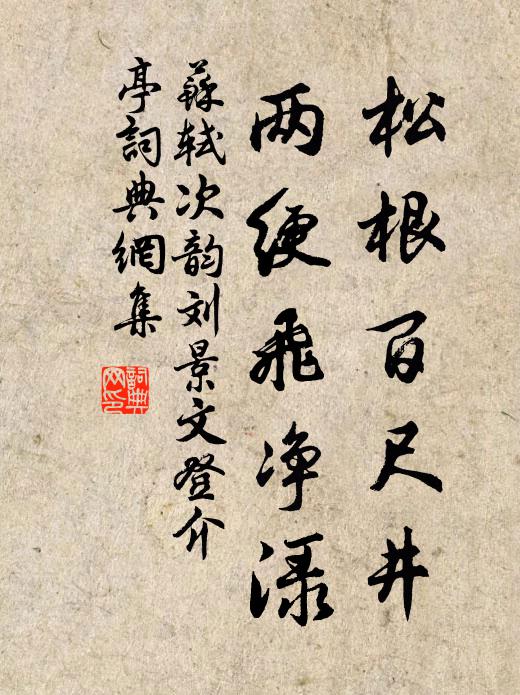 松根百尺井
两绠飞净渌
蘇轼次韵刘景文登介
亭詞典網集
詞典网印